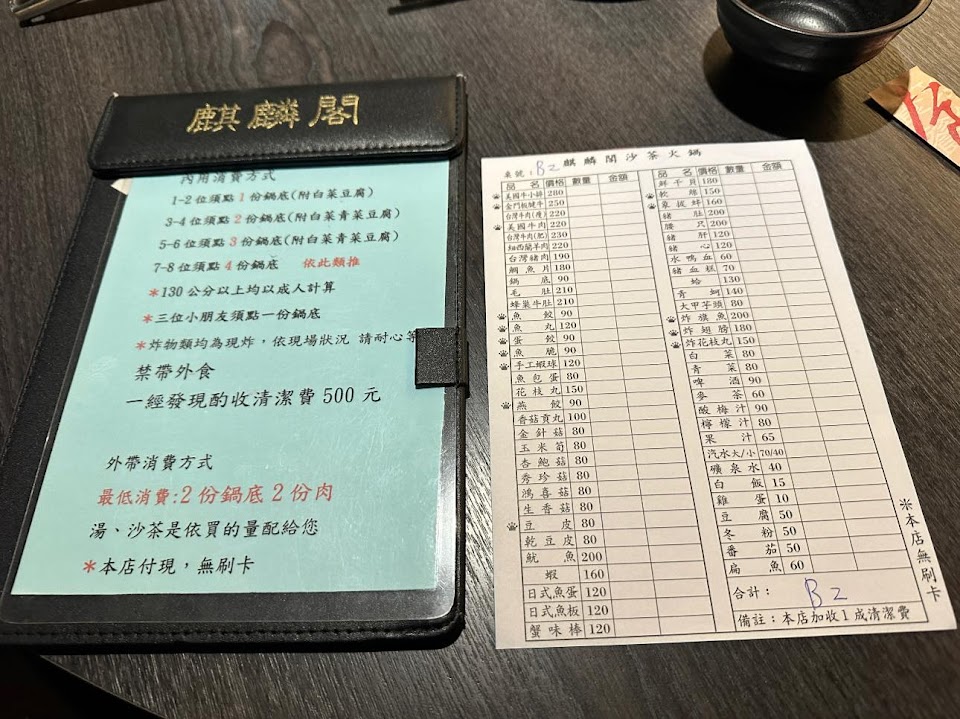 麒麟閣
內用消費方式
1-2 位須點 1 份鍋底(附白菜豆腐)
3-4 位須點 2 份鍋底(附白菜青菜豆腐)
5-6 位須點 3 份鍋底(附白菜青菜豆腐)
7-8 位須點 4 份鍋底 依此類推
*130 公分以上均以成人計算
*三位小朋友須點一份鍋底
*炸物類均為現炸，依現場狀況 請耐心等
禁帶外食
一經發現酌收清潔費 500 元
外帶消費方式
最低消費:2 份鍋底 2 份肉
湯、沙茶是依買的量配給您
*本店付現，無刷卡
麒麟閣沙茶火鍋
桌號：B2
品名 價格 數量 金額
美國牛小排 280
金門板腱牛 250
台灣牛肉(瘦) 220
美國牛肉 220
台灣牛肉(肥) 230
紐西蘭羊肉 220
台灣豬肉 190
鯛魚片 180
鍋底 90
毛肚 210
蜂巢牛肚 210
魚餃 90
魚丸 120
蛋餃 90
魚脆 90
手工蝦球 120
魚包蛋 80
花枝丸 150
燕餃 90
香菇貢丸 100
金針菇 80
玉米筍 80
杏鮑菇 80
秀珍菇 80
鴻喜菇 80
生香菇 80
豆皮 80
乾豆皮 80
魷魚 200
蝦 160
日式魚蛋 120
日式魚板 120
蟹味棒 120
品名 價格 數量 金額
鮮干貝 180
軟絲 150
象拔蚌 160
豬肚 200
腰尺 200
豬肝 120
豬心 120
水鴨血 60
豬血糕 70
蛤 130
青蚵 140
大甲芋頭 80
炸旗魚 200
炸翅膀 180
炸花枝丸 150
白菜 80
青菜 80
啤酒 90
麥茶 60
酸梅汁 90
檸檬汁 80
果汁 65
汽水大/小 70/40
礦泉水 40
白飯 15
雞蛋 10
豆腐 50
冬粉 50
番茄 50
扁魚 60
合計： B2
備註：本店加收1成清潔費
※本店無刷卡